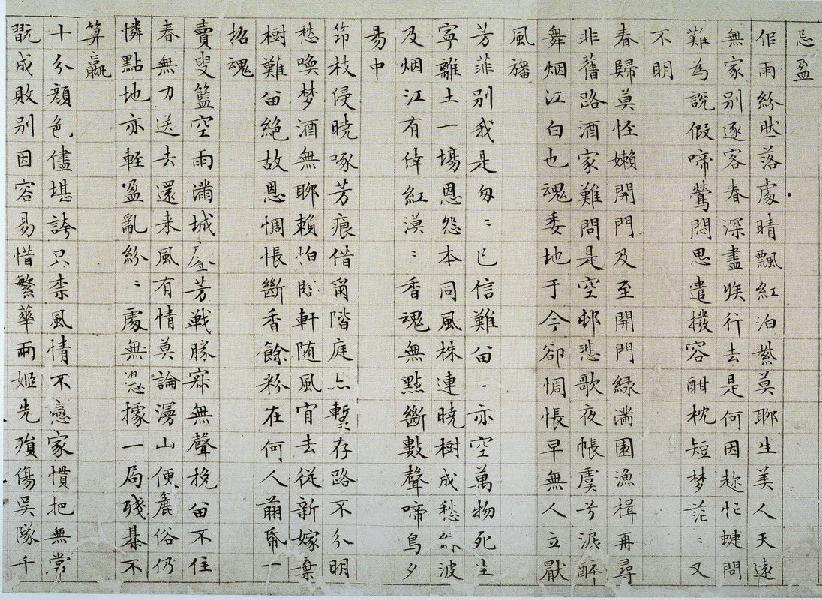 忌盈
作雨紛然落處晴飄紅泊紫莫聊生美人天遠
無家別逐客春深盡族行去是何因趂忙蜨問
難為說假啼鶯悶思遣撥容酣枕短夢茫〻又
不明
春歸莫怪嬾開門及至開門綠滿園漁楫再尋
非舊路酒家難問是空邨悲歌夜帳虞兮淚醉
舞烟江白也魂委地于今卻惆悵早無人立厭
風旛
芳菲別我是匆〻已信難留亦空萬物死生
寧離土一場恩怨本同風株連曉樹成愁綠波
及烟江有倖紅漠〻香魂無點斷數聲啼鳥夕
昜中
節枝侵曉啄芳痕借問階庭亦暫存路不分明
愁喚梦酒無聊賴怕臨軒随風肯去從新嫁棄
樹難留絶故恩惆悵斷香餘粉在何人剪帋一
招魂
賣叟籃空雨滿城芳戰勝寂無聲挽留不住
春無力送去還来風有情莫論漫山便麄俗仍
憐點地亦輕盈亂紛〻處無憑據一局殘棊不
算贏
十分顏色儘堪誇只柰風情不戀家慣把無常
翫成敗別因容易惜繁華兩姬先殞傷吳隊千